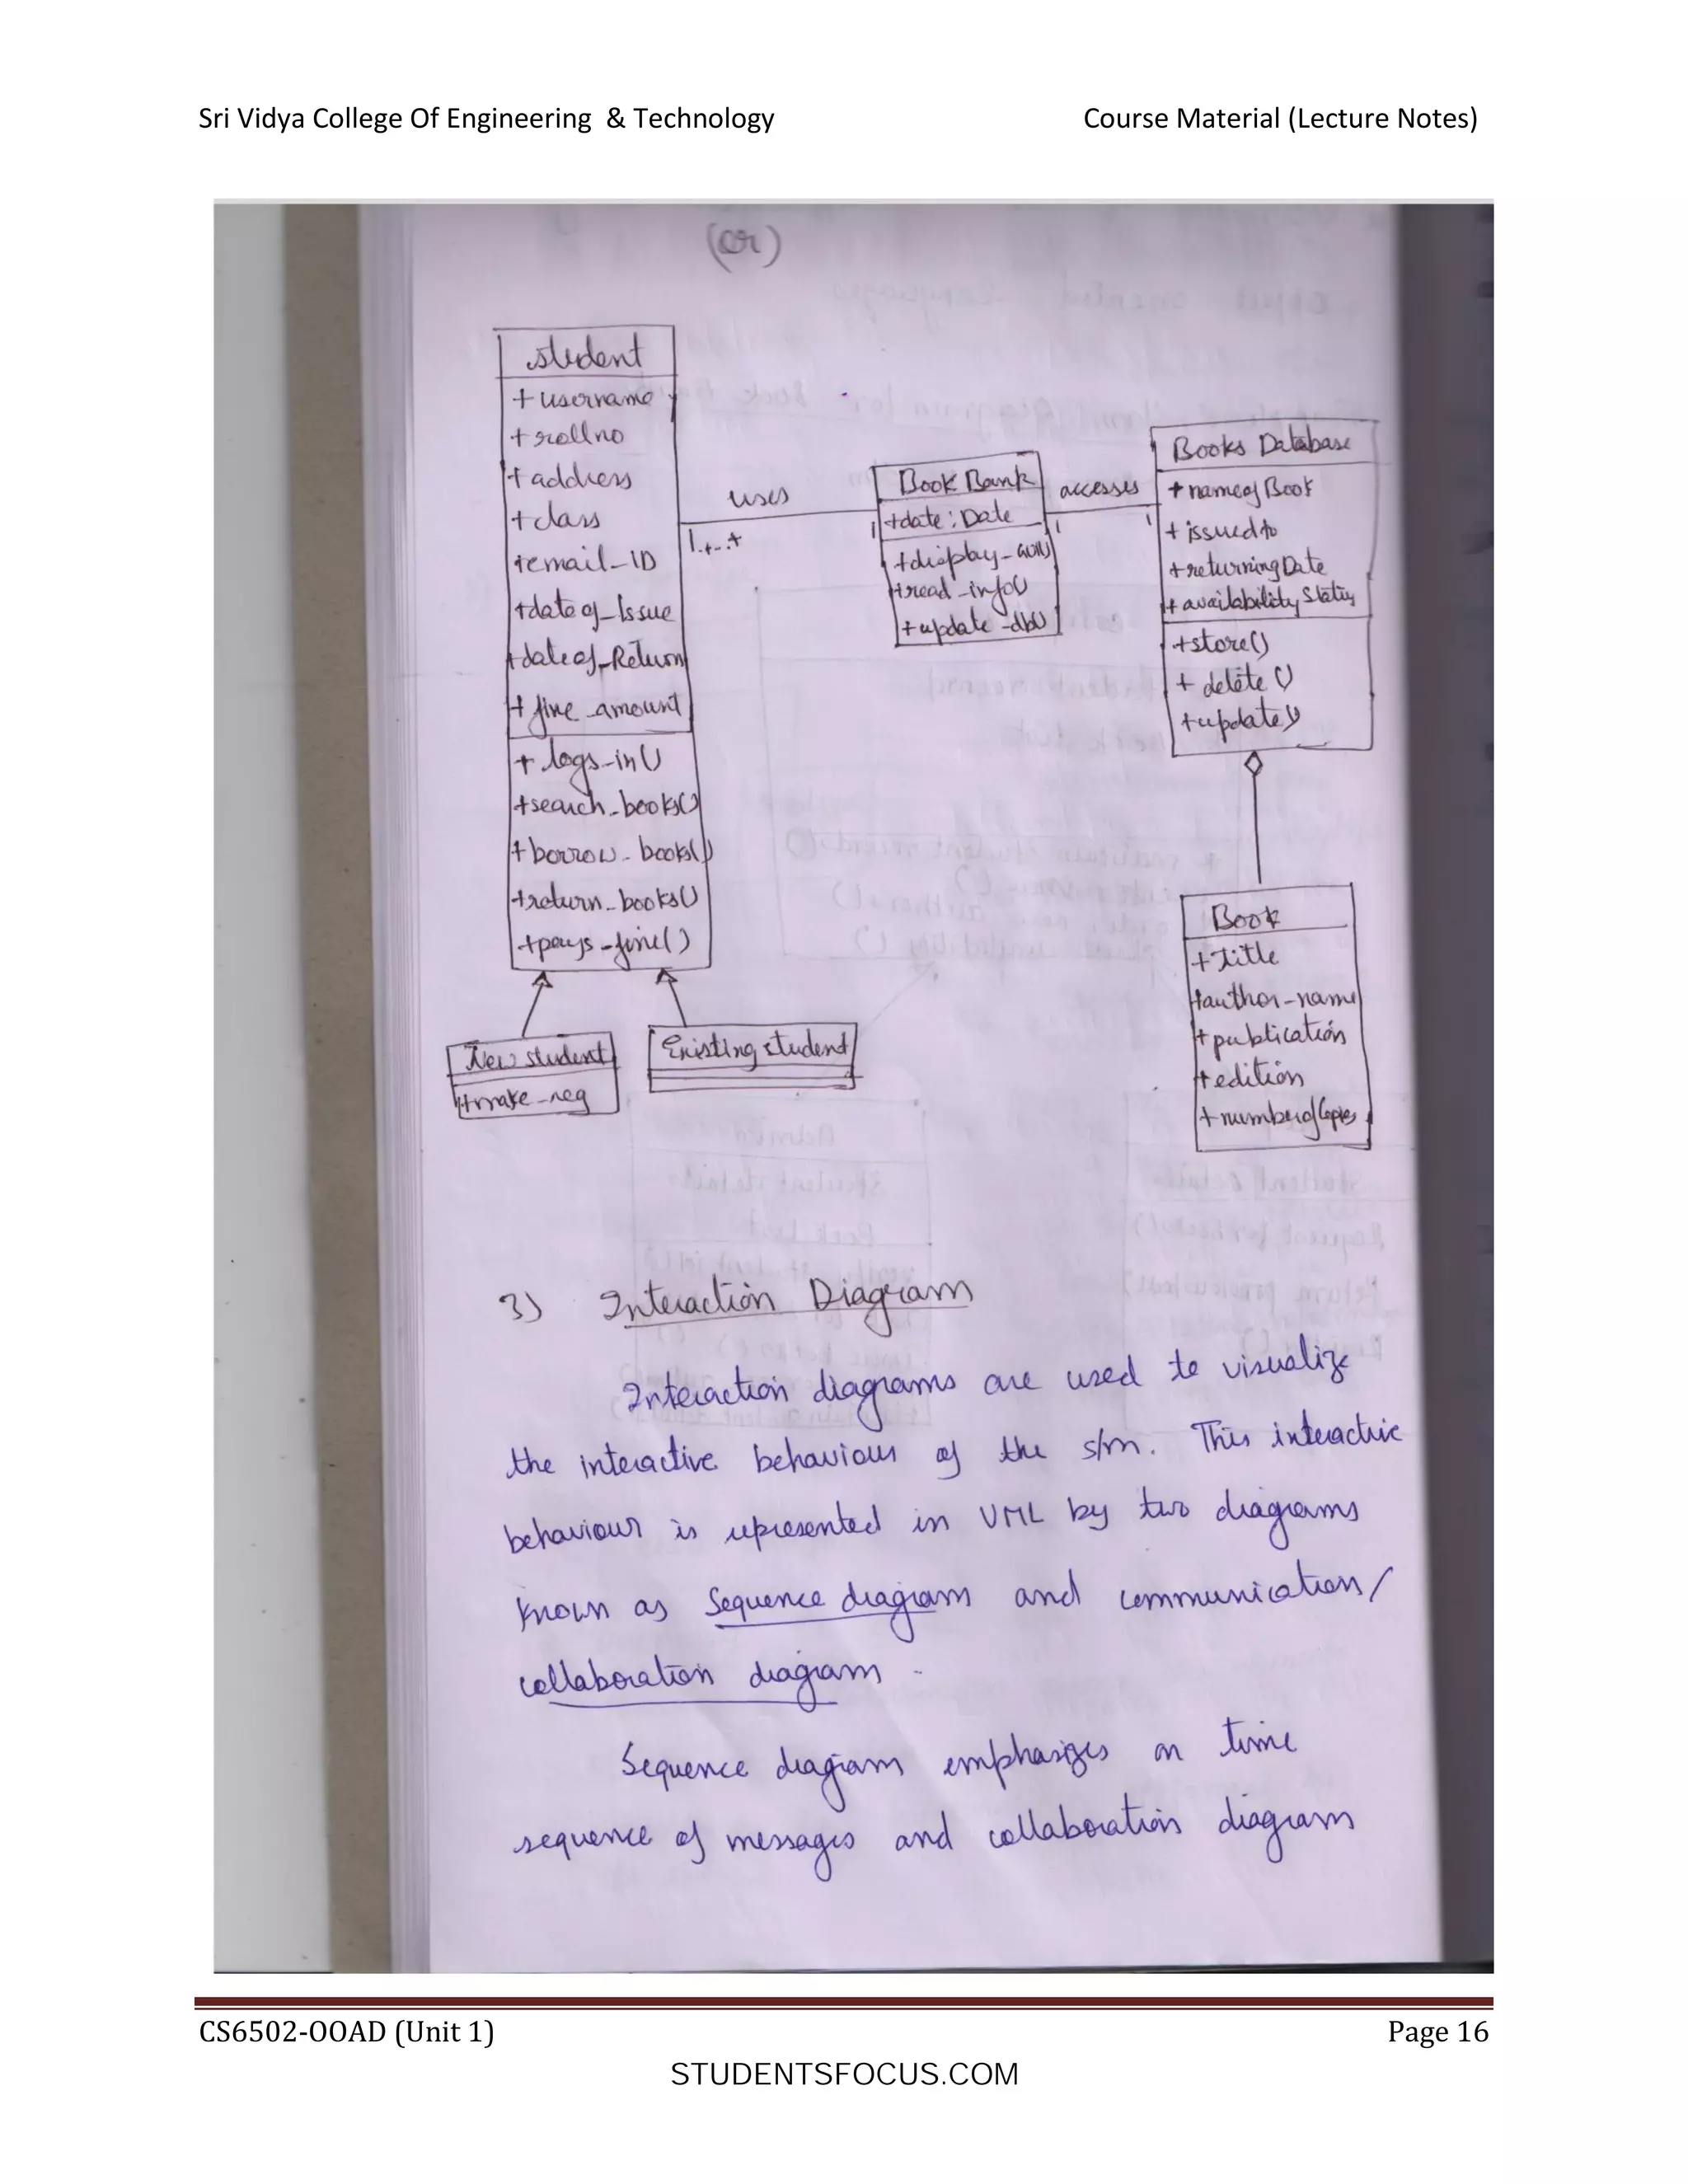 Sri Vidya College Of Engineering & Technology Course Material (Lecture Notes)
(or)
student
+ username
+ rollno
+ address
+ class
+email_ID
+date of_Issue
+date of_Return
+ fine_amount
+ logs_in()
+search_books()
+ borrow_books()
+return_books()
+pays_fine()
uses
1..+..+
1
Book Bank
+date : Date
+display_
+read_info()
+update_db()
accesses
1
1
Books Database
+ nameofBook
+ issued to
+ returningDate
+ availability Status
+store()
+ delete ()
+update()
Book
+Title
+author_name
+publication
+edition
+numberofCopies
New student
+make_reg
Existing student
3) Interaction Diagram
Interaction diagrams are used to visualize
the interactive behaviour of the s/m. This interactive
behaviour is represented in UML by two diagrams
known as Sequence diagram and communication/
collaboration diagram.
Sequence diagram emphasizes on time
sequence of messages and collaboration diagram
CS6502-OOAD (Unit 1) Page 16
STUDENTSFOCUS.COM